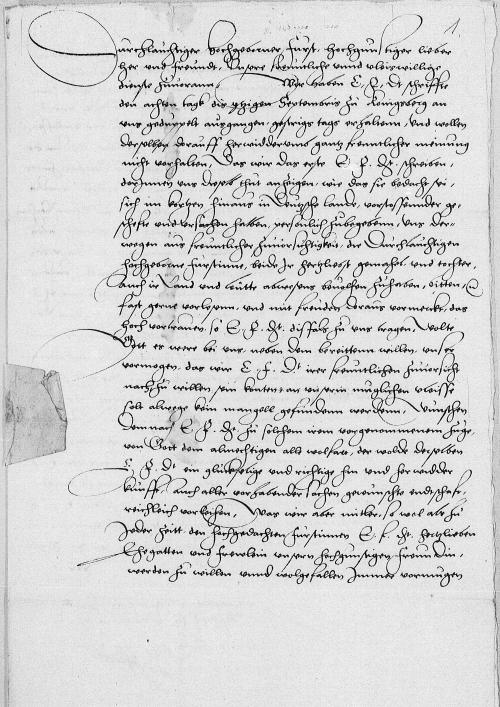 1.
Durchlauchtiger Hochgeborner Fürst, hochgunstiger lieber
her und freundt, Unsere freuntliche unnd vleiswillige
dienste zuuorann, Wir haben E. F. Dt schriffte
den achten tagk die ytzigen Septembris zu Konigsberg an
uns gedoppelt ausgangen, gestrigs tags erhaltenn, und wollen
derselben darauff herwidder umb gantz freuntlicher meinung
nicht vorhalten, Das wir das erste E. F. Dt. schreiben,
dorinnen uns dieselb thut antzeigen, wie das sie bedacht sei,
sich im kortzen hinaus in Deutzsche lande, vorfassender ge-
scheffte und vrsachen halben, personlich zubegebenn, Uns der-
wegen aus freuntlicher zuuorsichtigkeit, die Durchlauchtigen
hochgeborne furstinne, beide Ir hertzliebst gemahel und tochter,
Auch ir Land und leutte abwesens beuolhen zuhaben, bitten,
fast gerne vorlesenn, und mit freuden daraus vormerckt, das
hoch vortrauen, so E. F. Dt. disfals zu uns tragen, Wolte
Gott es were bei uns, neben dem bereittenn willen, unser
vormogen, das wir E. F. Dt irer freuntlichen zuuorsicht
nach zu willen sein konten, an unserm muglichen vleisse
solt alwege kein mangell gefunden werdenn, Wunschen
demnach E. F. Dt zu solchem irem vorgenommenem zuge,
von Gott dem almechtigen alle wolfart, der wolde derselben
E. F. Dt ein gluckselige und richtige hin und herwidder
kunfft, auch aller vorhabender sachen gewunschte endtschafft,
reichlich vorleihen, Was wir aber mitler, so wol als zu
Jeder zeitt, den hochgedachten furstinnen E. F. Dt. hertzlieben
Ehegatten und freuelein unsern hochgunstigen freundin,
werden zu willen unnd wolgefallen Immer vormugen